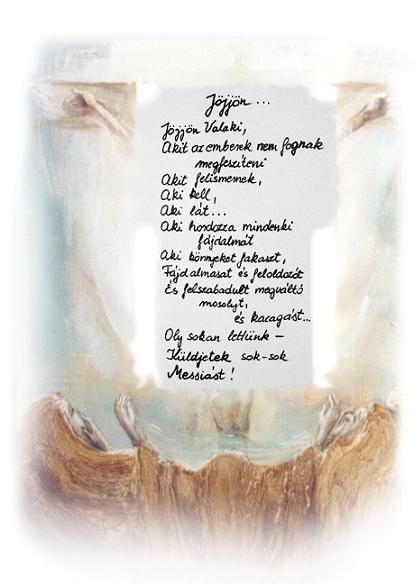 Jöjjön ...
Jöjjön Valaki,
Akit az emberek nem fognak
megfeszíteni
Akit felismernek,
Aki kell,
Aki lát...
Aki hordozza mindenki
fájdalmát
Aki könnyeket fakaszt,
Fájdalmasat és feloldozót
És felszabadult megváltó
mosolyt,
és kacagást...
Oly sokan lettünk –
Küldjetek sok-sok
Messiást!